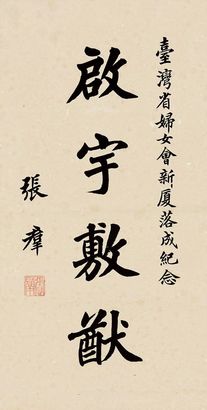 臺灣省婦女會新厦落成紀念
啟宇敷猷
張羣